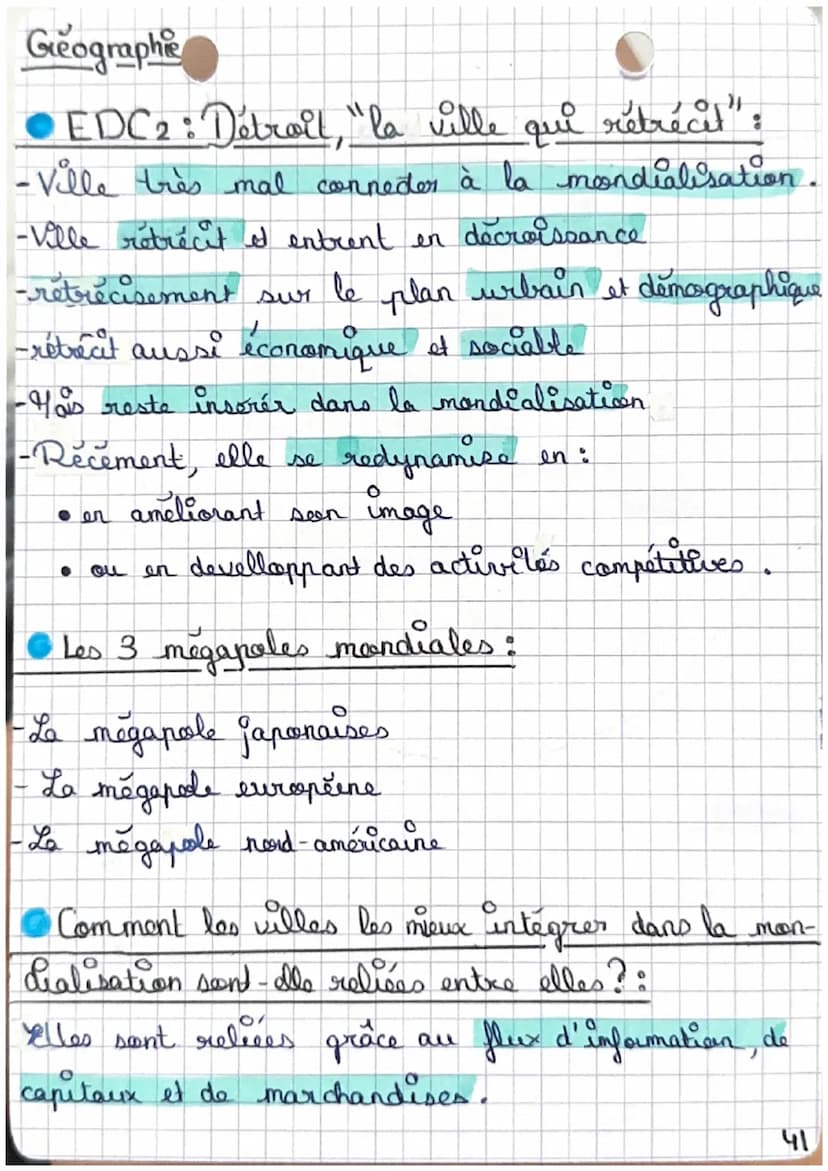 Géographie
EDC2 : Détroit, "la ville qui rétrécit" :
- Ville très mal connecter à la mondialisation.
- Ville rétrécit et entrent en décroissance
- rétrécisement sur le plan urbain et démographique
- rétrécit aussi économique et sociable
- Mais reste insérér dans la mondialisation
- Récément, elle se redynamise en :
• en améliorant son image
• ou en develloppant des activités compétitives.
Les 3 mégapoles mondiales :
- La mégapole japonaises
- La mégapole européene
- La mégapole nord-américaine
Comment les villes les mieux intégrer dans la mon-
dialisation sont-elle reliées entre elles ? :
Elles sont reliées grâce au flux d'information, de
capitaux et de marchandises.
41